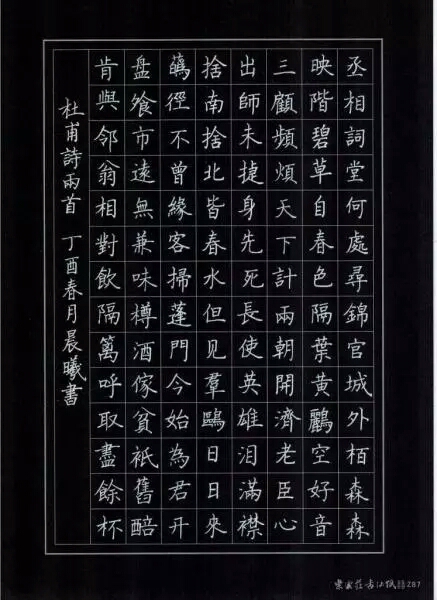 丞相詞堂何處尋錦官城外栢森森
映階碧草自春色隔葉黃鸝空好音
三顧頻煩天下計兩朝開濟老臣心
出師未捷身先死長使英雄泪滿襟
捨南捨北皆春水但见羣鷗日日來
蘤徑不曾緣客掃蓬門今始為君开
盤飧市遠無兼味樽酒傢貧衹舊醅
肯與邻翁相對飲隔篱呼取盡餘杯
杜甫詩兩首 丁酉春月晨曦書
287